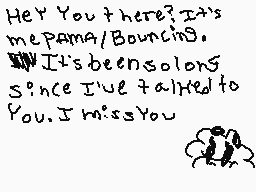 HeY You there? It's
me PAMA/Bouncing.
It's been so long
since I've talked to
You. I miss You